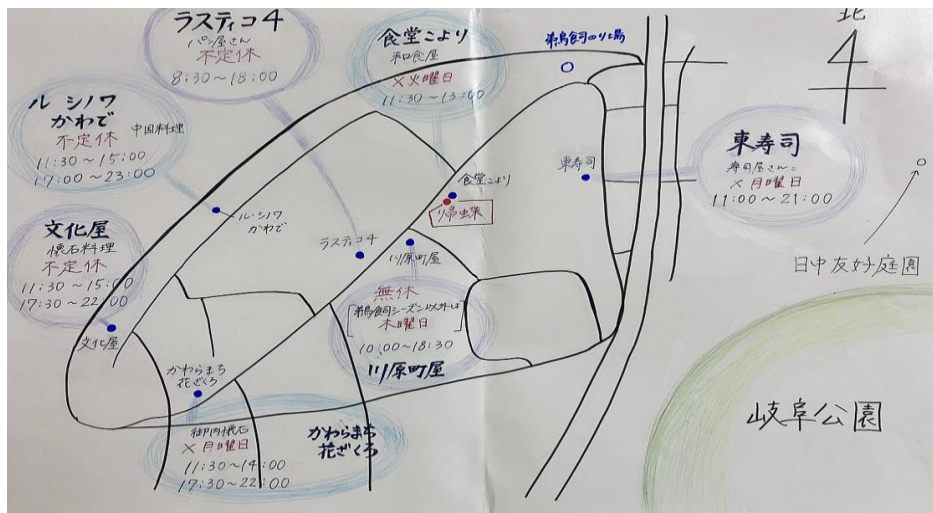 ラスティコ4
パン屋さん
不定休
8:30～18:00
食堂こより
和食屋
×火曜日
11:30～13:00
鵜飼のり場
北
ル シノワ
かわで
不定休
中国料理
11:30～15:00
17:00～23:00
東寿司
寿司屋さん。
×月曜日
11:00～21:00
東寿司
食堂こより
ル・シノワ
かわで
文化屋
懐石料理
不定休
11:30～15:00
17:30～22:00
ラスティコ4
川原町屋
日中友好庭園
無休
鵜飼シーズン以外は
木曜日
10:00～18:30
川原町屋
文化屋
かわらまち
花ざくろ
岐阜公園
×月曜日
11:30～14:00
17:30～22:00
かわらまち
花ざくろ